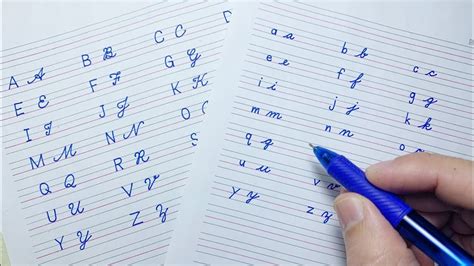 A A B B C C D
E E F F G G
I I J J K K
M M N N O O
Q Q R R S
U U V V
Y Y Z Z
a a b b c c
e e f f g g
i i j j k k
m m n n o
q q
u u v v
y y z z